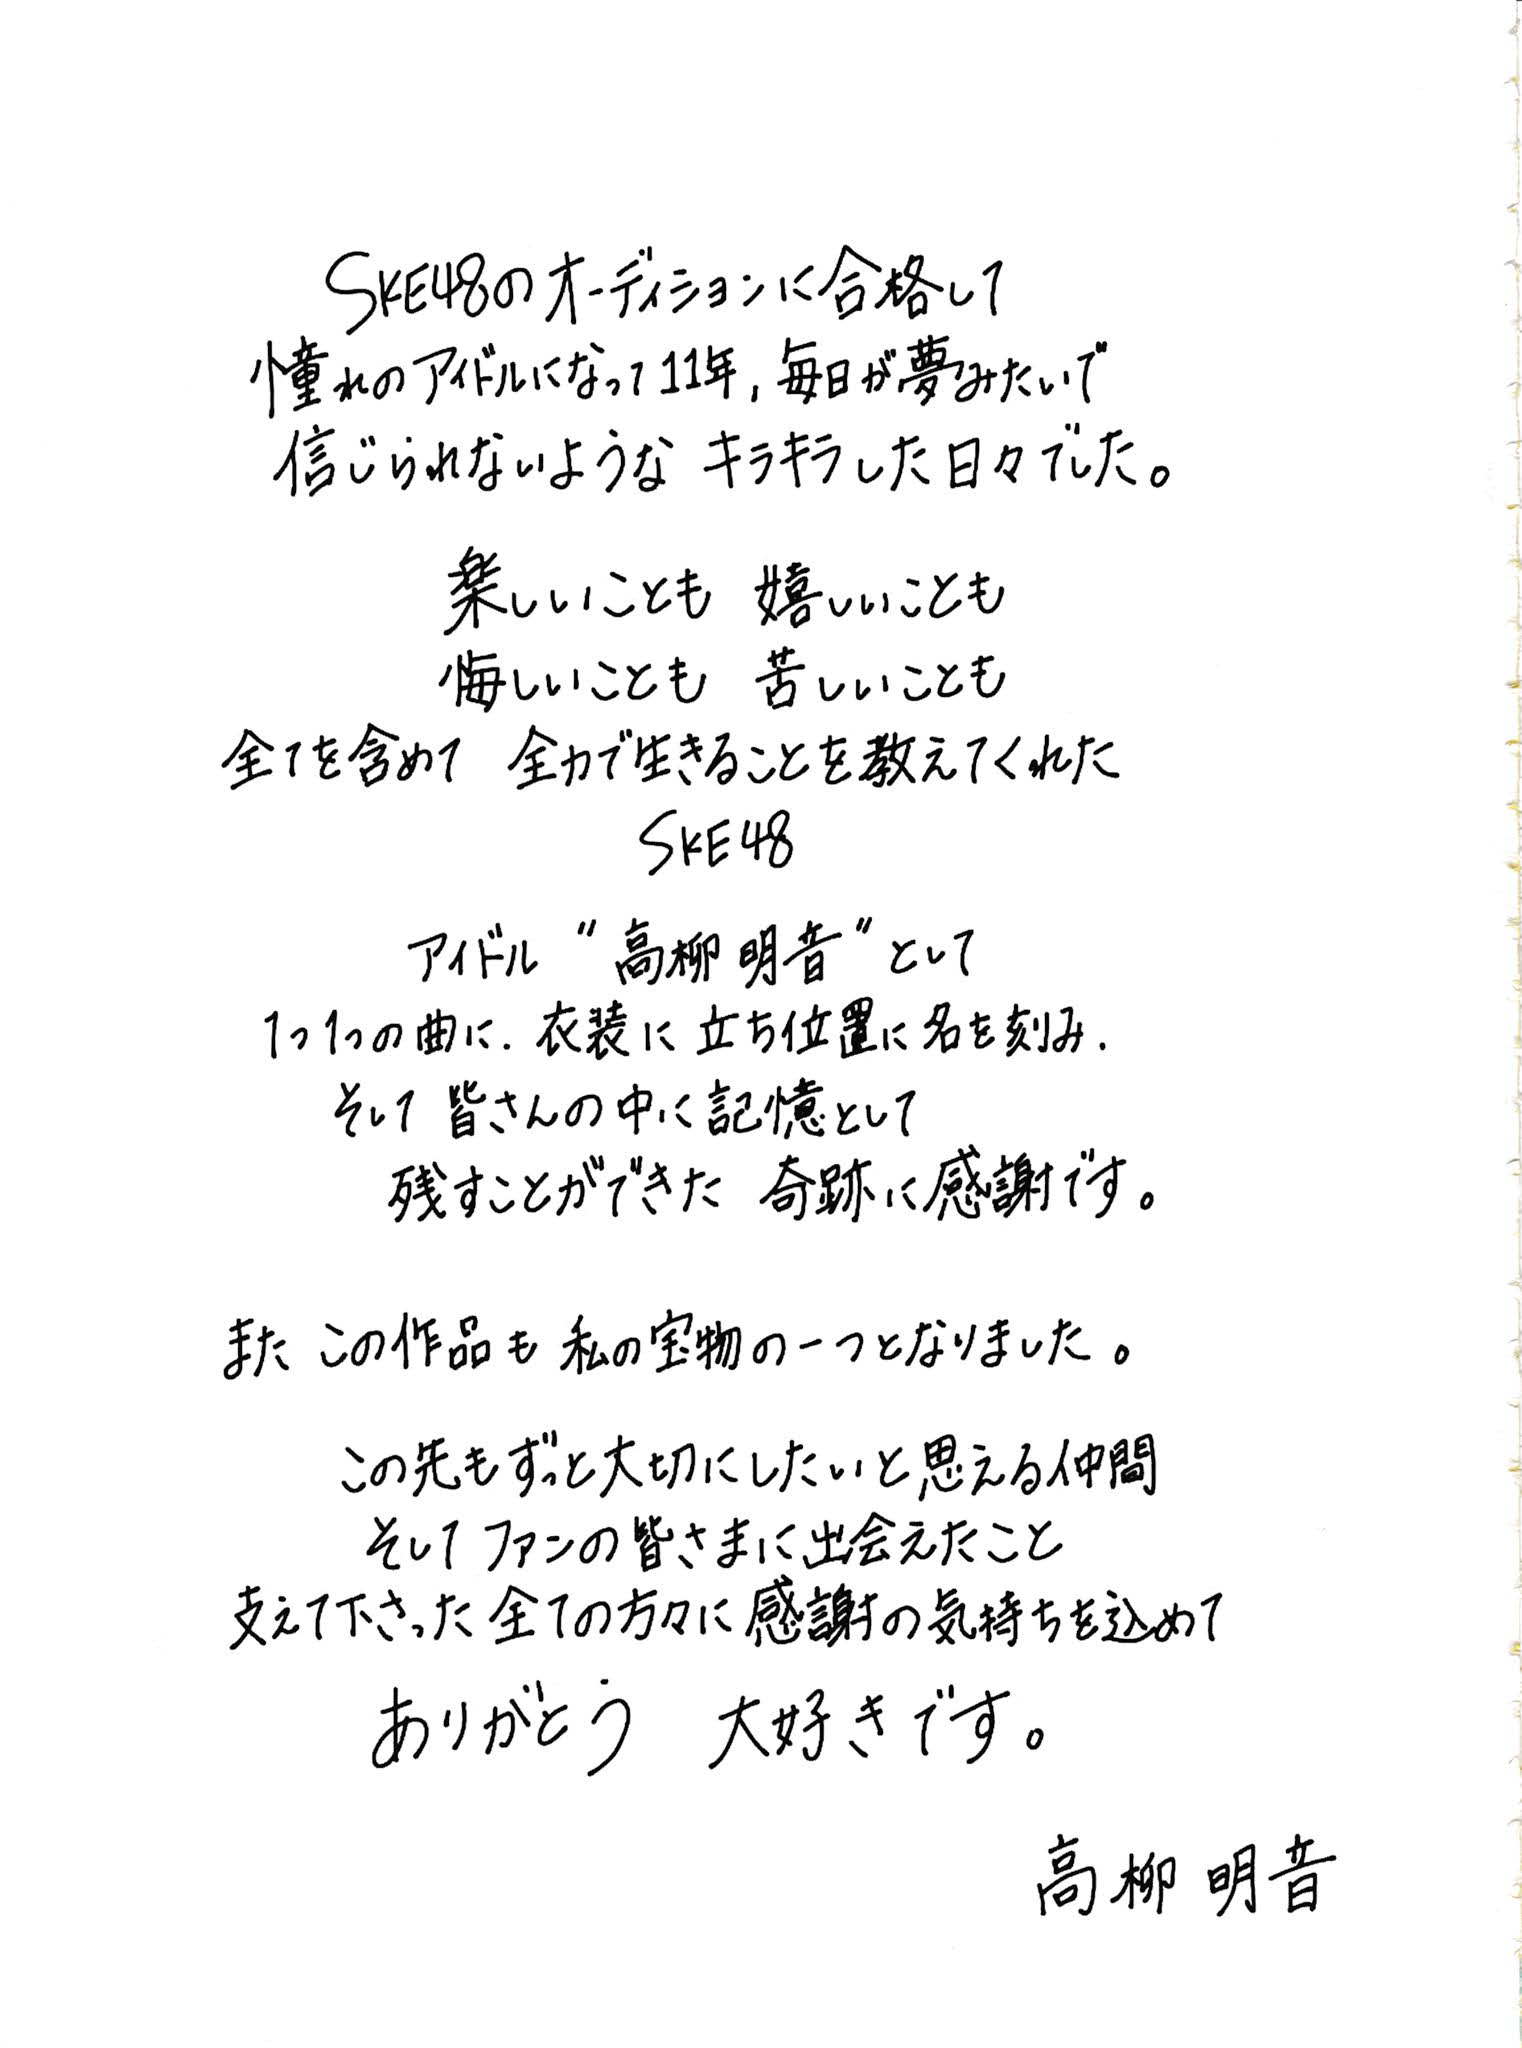 SKE48のオーディションに合格して
憧れのアイドルになって11年,毎日が夢みたいで
信じられないような キラキラした日々でした。
楽しいことも 嬉しいことも
悔しいことも 苦しいことも
全てを含めて 全力で生きることを教えてくれた
SKE48
アイドル "高柳明音"として
1つ1つの曲に.衣装に立ち位置に名を刻み.
そして 皆さんの中に記憶として
残すことができた 奇跡に感謝です。
また この作品も 私の宝物の一つとなりました。
この先もずっと大切にしたいと思える仲間
そして ファンの皆さまに出会えたこと
支えて下さった全ての方々に感謝の気持ちを込めて
ありがとう 大好きです。
高柳 明音